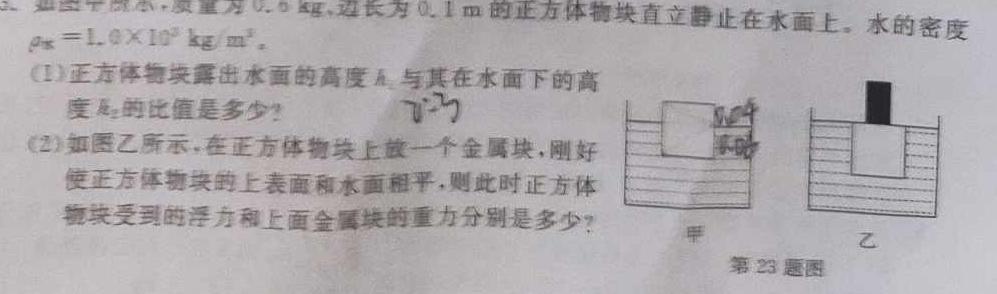 3. 如图甲所示,质量为0.6 kg,边长为0.1 m的正方体物块直立静止在水面上。水的密度
ρ水=1.0×10³ kg/m³。
(1)正方体物块露出水面的高度h₁与其在水面下的高
度h₂的比值是多少?
2:3
(2)如图乙所示,在正方体物块上放一个金属块,刚好
使正方体物块的上表面和水面相平,则此时正方体
物块受到的浮力和上面金属块的重力分别是多少?
0.04
0.06
甲
乙
第23题图